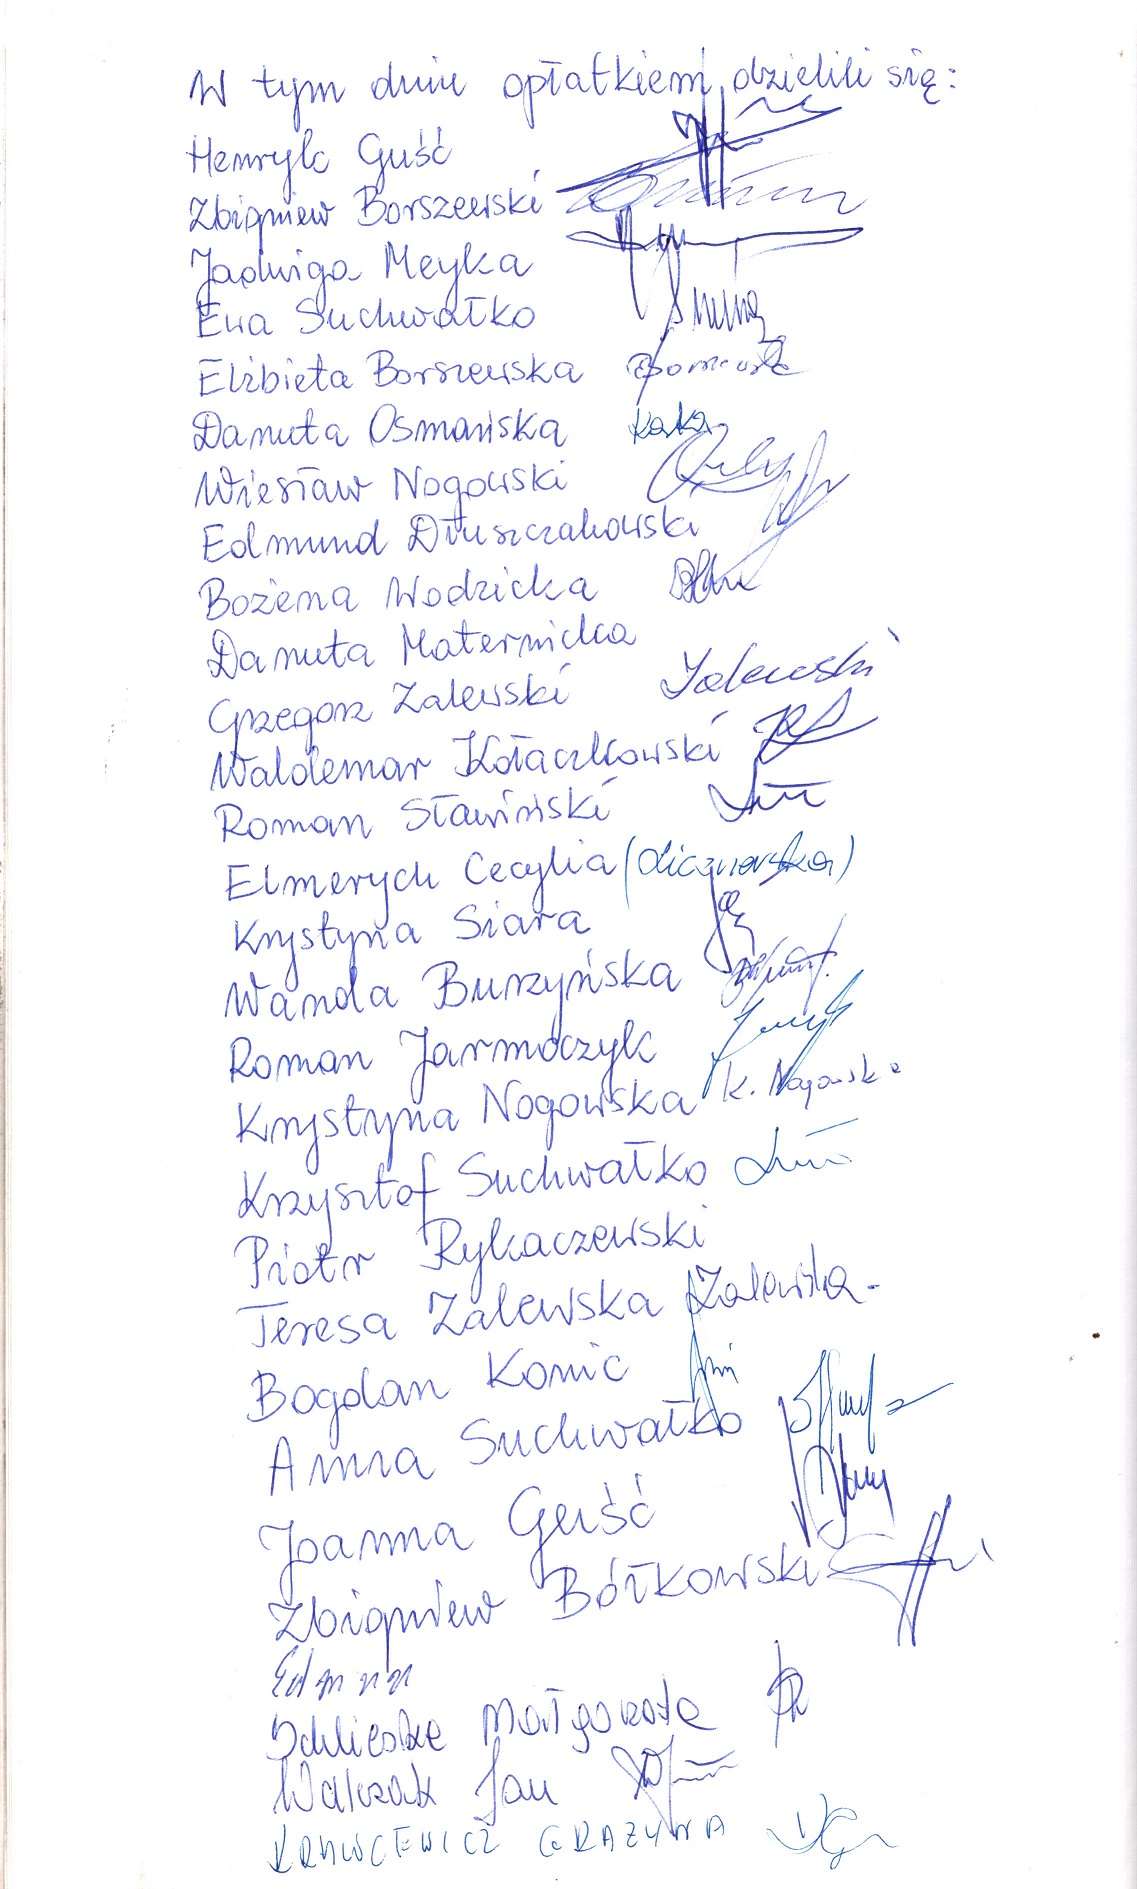 W tym dniu opłatkiem dzielili się:
Henryk Guść
Zbigniew Borszewski
Jadwiga Meyka
Ewa Suchwałko
Elżbieta Borszewska
Danuta Osmańska
Wiesław Nogowski
Edmund Dłuszczakowski
Bożena Wodzicka
Danuta Maternicka
Grzegorz Zalewski Zalewski
Waldemar Kołaczkowski
Roman Sławiński
Elmerych Cecylia
Krystyna Siara
Wanda Burzyńska
Roman Jarmoczyk
Krystyna Nogowska K. Nogowska
Krzysztof Suchwałko
Piotr Rykaczewski
Teresa Zalewska Zalewska
Bogdan Konic
Anna Suchwałko
Joanna Guść
Zbigniew Bółkowski
Małgorzata
Walczak Jan
KRAWCEWICZ GRAŻYNA